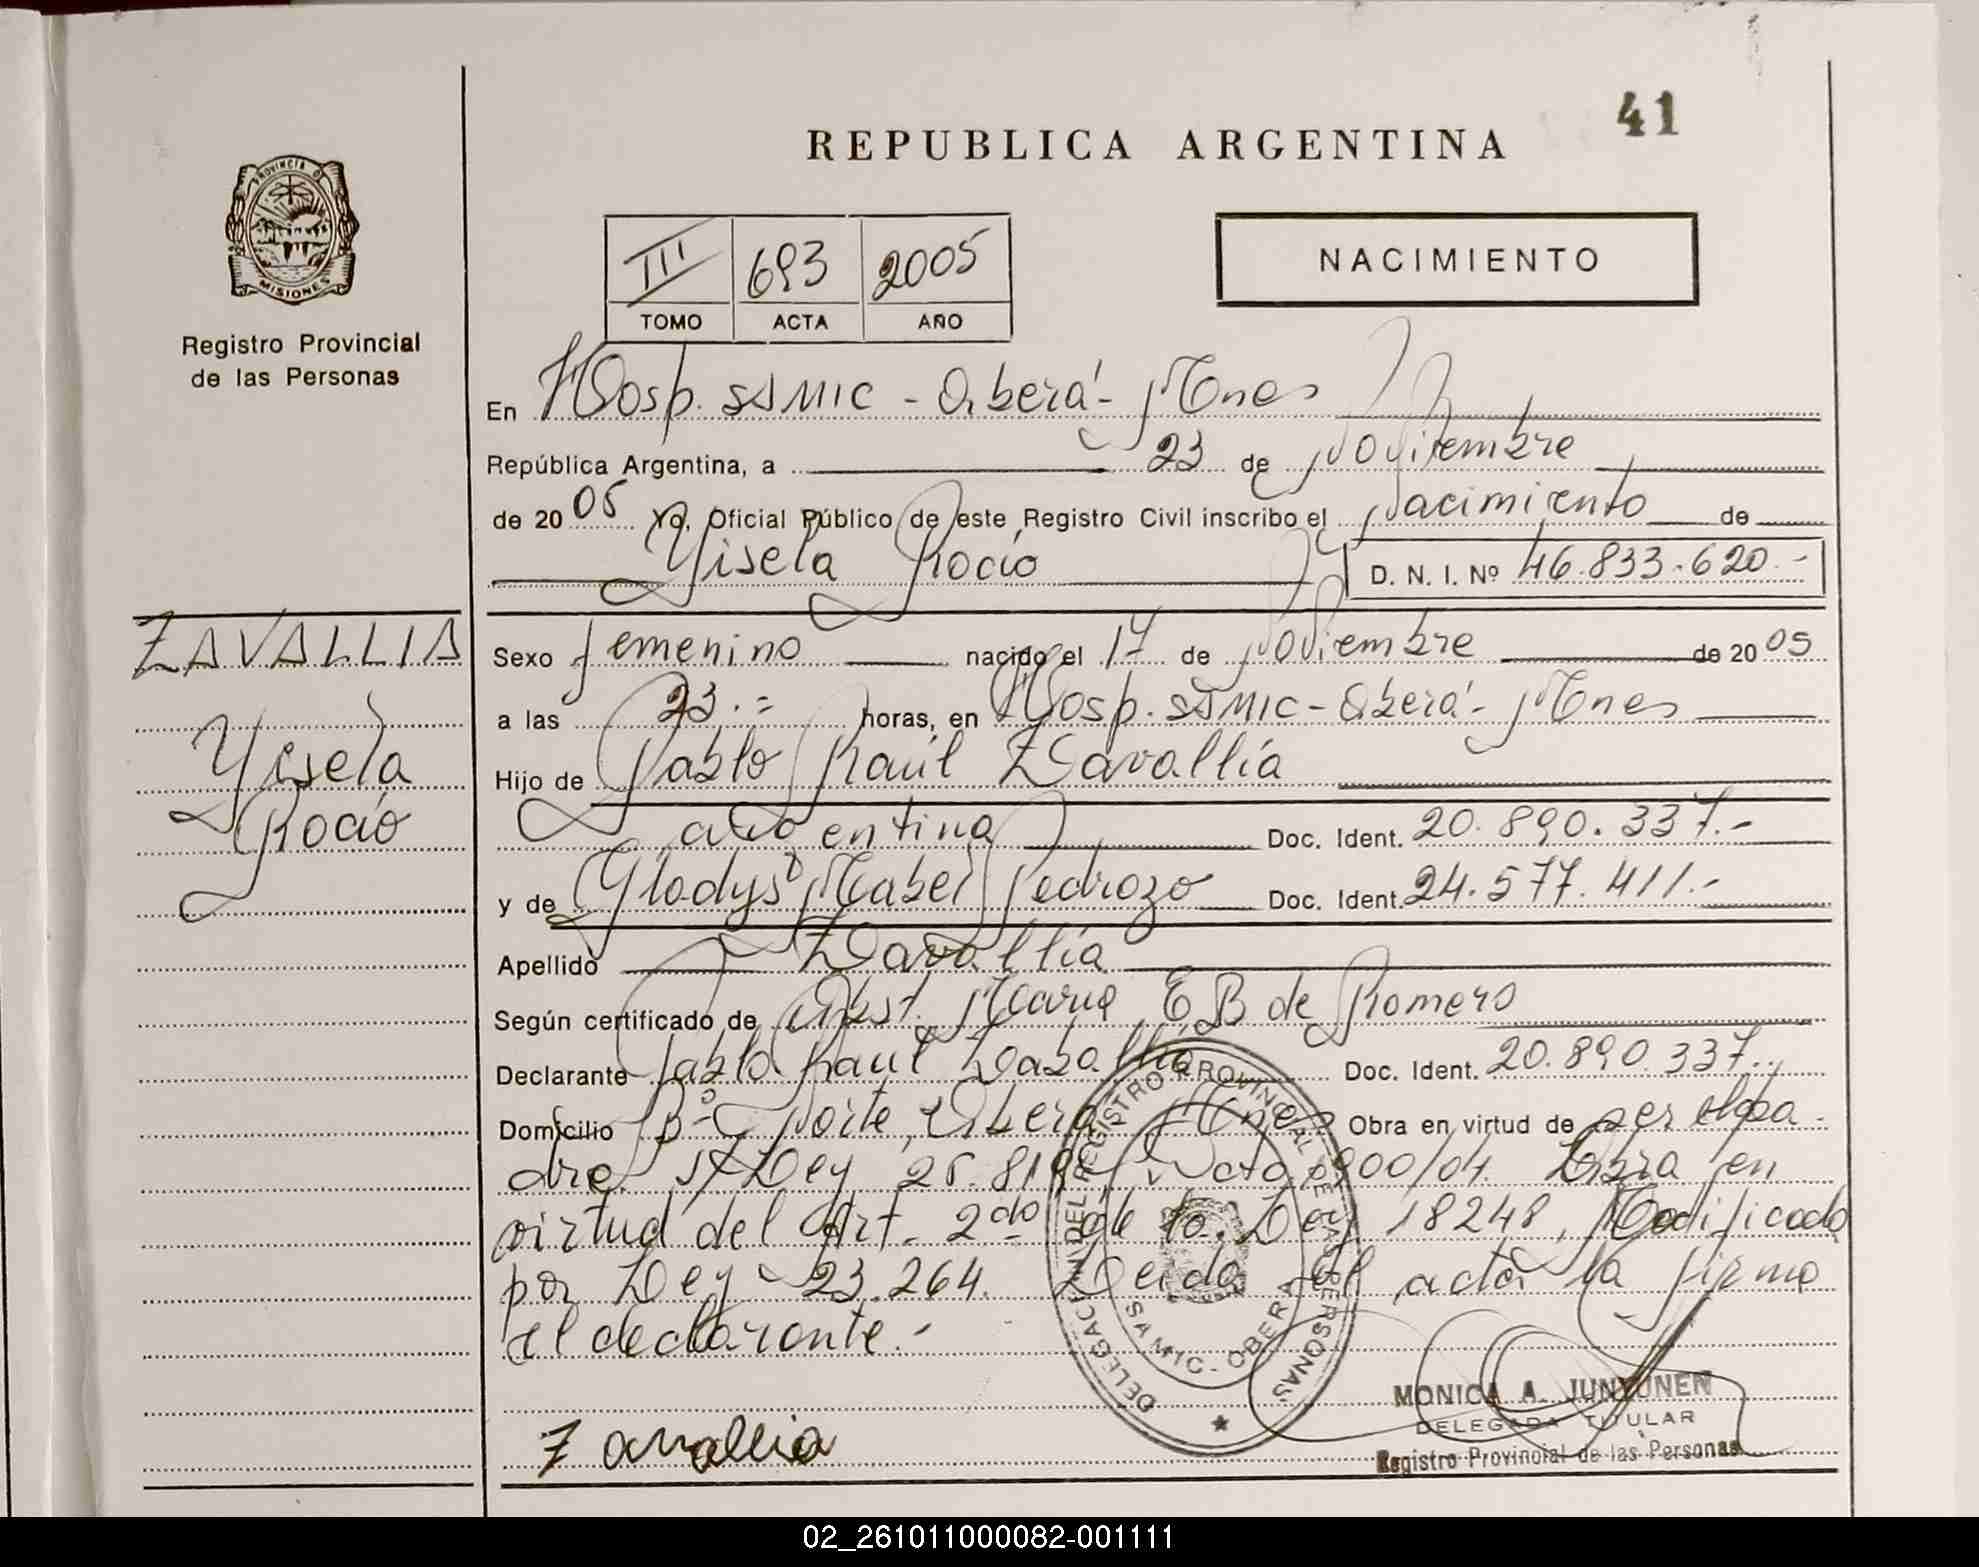 41
REPUBLICA ARGENTINA
PROVINCIA DE
MISIONES
Registro Provincial
de las Personas
NACIMIENTO
III 693 2005
TOMO ACTA AÑO
En Hosp. SAMIC - Oberá - Mnes
República Argentina, a 23 de Noviembre
de 2005 Yo, Oficial Público de este Registro Civil inscribo el Nacimiento de
Yisela Rocío D. N. I. Nº 46.833.620.-
ZAVALLIA
Yisela
Rocío
Sexo femenino nacido el 17 de Noviembre de 2005
a las 23.= horas, en Hosp. SAMIC - Oberá - Mnes
Hijo de Pablo Raúl Zavallía
argentina Doc. Ident. 20.890.337.-
y de Gladys Mabel Pedrozo Doc. Ident. 24.577.411.-
Apellido Zavallía
Según certificado de Obst. Maria E B de Romero
Declarante Pablo Raúl Zaballia Doc. Ident. 20.890.337.-
Domicilio Bº Norte, Oberá Mnes Obra en virtud de ser el pa
dre. S/Ley 25.819 Dcto 900/04. Obra en
virtud del Art. 2do de la Ley 18248, Modificado
por Ley 23.264. Leída el acta la firma
el declarante.-
DELEGACION DEL REGISTRO PROVINCIAL DE LAS PERSONAS
SAMIC - OBERA
Zavallia
MONICA A. JUNYUNEN
DELEGADA TITULAR
Registro Provincial de las Personas
02_261011000082-001111